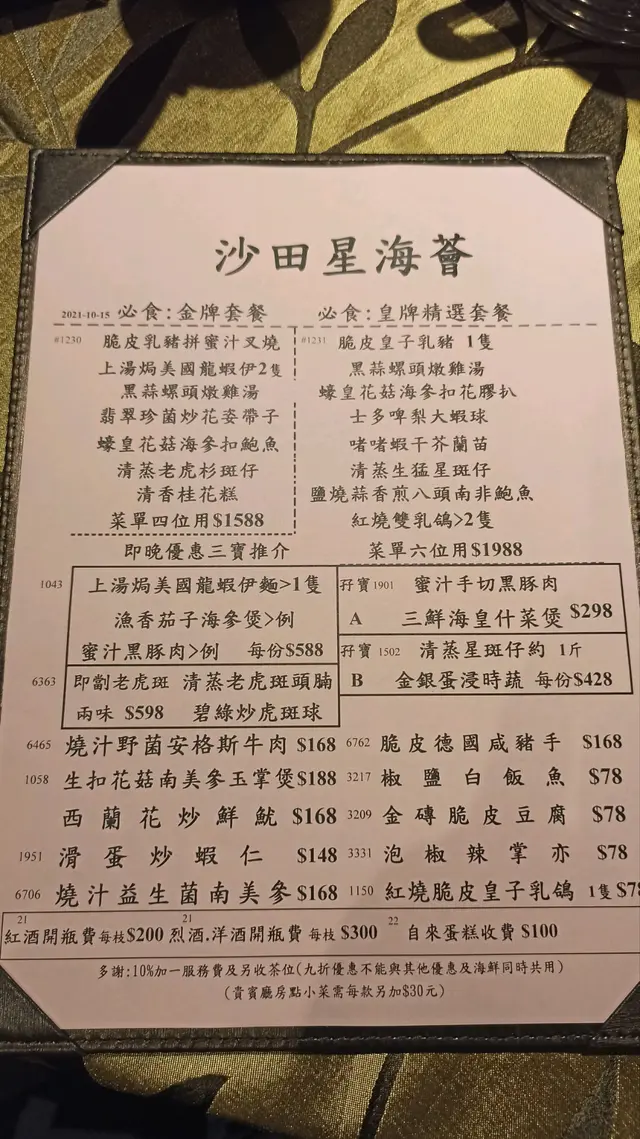 沙田星海薈
2021-10-15 必食:金牌套餐
#1230 脆皮乳豬拼蜜汁叉燒
上湯焗美國龍蝦伊2隻
黑蒜螺頭燉雞湯
翡翠珍菌炒花姿帶子
蠔皇花菇海參扣鮑魚
清蒸老虎杉斑仔
清香桂花糕
菜單四位用$1588
必食:皇牌精選套餐
#1231 脆皮皇子乳豬 1隻
黑蒜螺頭燉雞湯
蠔皇花菇海參扣花膠扒
士多啤梨大蝦球
啫啫蝦干芥蘭苗
清蒸生猛星斑仔
鹽燒蒜香煎八頭南非鮑魚
紅燒雙乳鴿>2隻
菜單六位用$1988
即晚優惠三寶推介
1043 上湯焗美國龍蝦伊麵>1隻
漁香茄子海參煲>例
蜜汁黑豚肉>例 每份$588
6363 即劏老虎斑 清蒸老虎斑頭腩
兩味 $598 碧綠炒虎斑球
孖寶 1901 蜜汁手切黑豚肉
A 三鮮海皇什菜煲 $298
孖寶 1502 清蒸星斑仔約 1斤
B 金銀蛋浸時蔬 每份$428
6465 燒汁野菌安格斯牛肉 $168
1058 生扣花菇南美參玉掌煲 $188
西蘭花炒鮮魷 $168
1951 滑蛋炒蝦仁 $148
6706 燒汁益生菌南美參 $168
6762 脆皮德國咸豬手 $168
3217 椒鹽白飯魚 $78
3209 金磚脆皮豆腐 $78
3331 泡椒辣掌亦 $78
1150 紅燒脆皮皇子乳鴿 1隻 $78
21 紅酒開瓶費每枝$200 21 烈酒.洋酒開瓶費 每枝 $300 22 自來蛋糕收費 $100
多謝:10%加一服務費及另收茶位(九折優惠不能與其他優惠及海鮮同時共用)
(貴賓廳房點小菜需每款另加$30元)